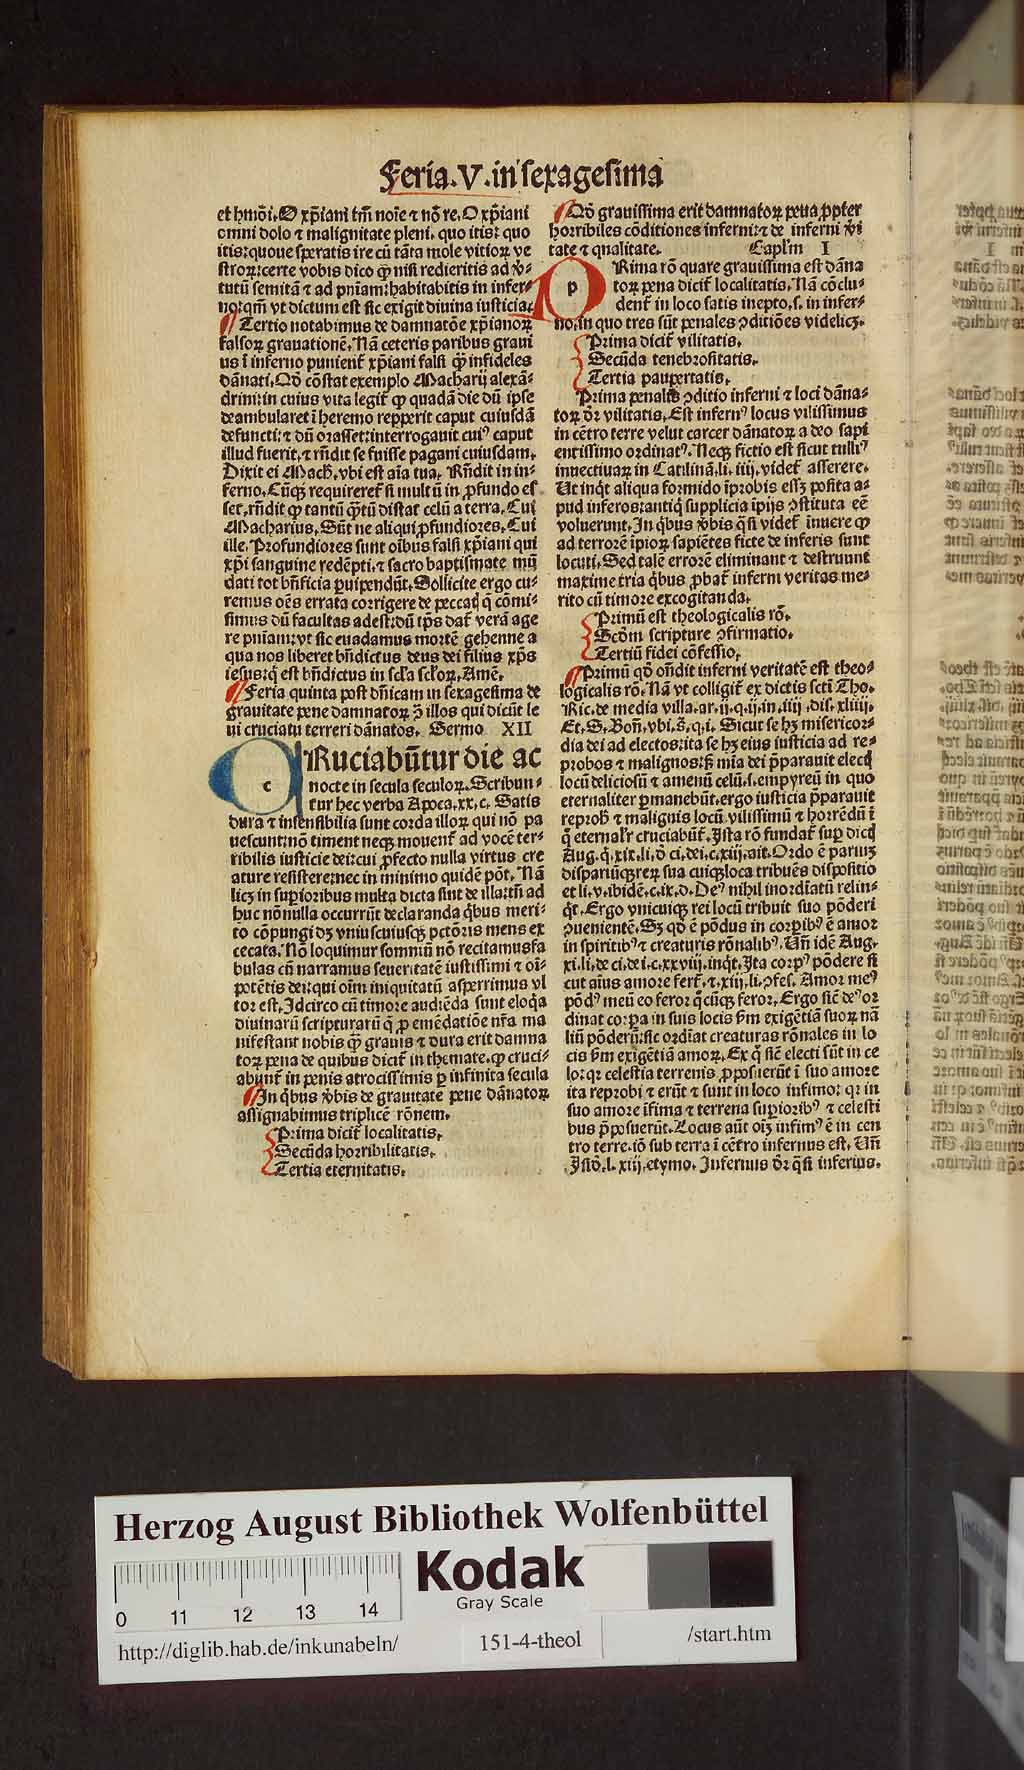 Feria.V.in sexagesima
et hmōi. O xp̄iani tm̄ noīe ⁊ nō re. O xp̄iani
omni dolo ⁊ malignitate pleni. quo itis: quo
itis: quoue speratis ire cū tāta mole vitioꝝ ve
stroꝝ: certe vobis dico ꝙ nisi redieritis ad v̓-
tutū semitā ⁊ ad pniam: habitabitis in infer-
no: qm̄ vt dictum est sic exigit diuina iusticia.
Tertio notabimus de damnatōe xp̄ianoꝝ
falsoꝝ grauationē. Nā ceteris paribus graui
us ī inferno punient̄ xp̄iani falsi ꝙ̄ infideles
dānati. Qd̄ cōstat exemplo Macharij alexā-
drini: in cuius vita legit̄ ꝙ quadā die dū ipse
deambularet ī heremo repperit caput cuiusdā
defuncti: ⁊ dū orasset: interrogauit cuiꝰ caput
illud fuerit. ⁊ rn̄dit se fuisse pagani cuiusdam.
Dixit ei Mach. vbi est aīa tua. Rn̄dit in in-
ferno. Cūqꝫ requireret̄ si multū in ꝓfundo es
set. rn̄dit ꝙ tantū ꝙ̄tū distat celū a terra. Cui
Macharius. Sūt ne aliqui ꝓfundiores. Cui
ille. Profundiores sunt oībus falsi xp̄iani qui
xp̄i sanguine redēpti. ⁊ sacro baptismate mū
dati tot bn̄ficia ꝑuipendūt. Sollicite ergo cu-
remus oēs errata corrigere de peccatꝭ q̄ cōmi-
simus dū facultas adest: dū tp̄s dat̄ verā age
re pniam: vt sic euadamus mortē gehenne a
qua nos liberet bn̄dictus deus dei filius xp̄s
iesus: q̇ est bn̄dictus in scl̄a scl̄oꝝ. Amē.
Feria quinta post dn̄icam in sexagesima de
grauitate pene damnatoꝝ ꝯ̄ illos qui dicūt le
ui cruciatu terreri dānatos. Sermo XII
c
Ruciabūtur die ac
nocte in secula seculoꝝ. Scribun-
tur hec verba Apoca. xx. c. Satis
dura ⁊ insensibilia sunt corda illoꝝ qui nō pa
uescunt: nō timent neqꝫ mouent̄ ad vocē ter-
ribilis iusticie dei: cui ꝓfecto nulla virtus cre
ature resistere: nec in minimo quidē pōt. Nā
licꝫ in suꝑioribus multa dicta sint de illa: tn̄ ad
huc nōnulla occurrūt declaranda q̇bus meri-
to cōpungi dꝫ vniuscuiusqꝫ pctōris mens ex
cecata. Nō loquimur somniū nō recitamus fa
bulas cū narramus seueritatē iustissimi ⁊ oī-
potētis dei: qui oīm iniquitatū asperrimus vl
tor est. Idcirco cū timore audiēda sunt eloq̇a
diuinarū scripturarū q̄ ꝓ emēdatiōe nr̄a ma
nifestant nobis ꝙ̄ grauis ⁊ dura erit damna
toꝝ pena de quibus dicit̄ in themate. ꝙ cruci-
abunt̄ in penis atrocissimis ꝑ infinita secula
In q̇bus v̓bis de grauitate pene dānatoꝝ
assignabimus triplicē rōnem.
Prima dicit̄ localitatis.
Secūda horribilitatis.
Tertia eternitatis.
Qd̄ grauissima erit damnatoꝝ pena ꝓpter
horribiles cōditiones inferni: ⁊ de inferni v̓i
tate ⁊ qualitate. Capl'm I
p
Rima rō quare grauissima est dāna
toꝝ pena dicit̄ localitatis. Nā cōclu-
dent̄ in loco satis inepto. s. in infer-
no. in quo tres sūt penales ꝯditiōes videlicꝫ.
Prima dicit̄ vilitatis.
Secūda tenebrositatis.
Tertia pauꝑtatis.
Prima penalis ꝯditio inferni ⁊ loci dāna-
toꝝ dr̄ vilitatis. Est infernꝰ locus vilissimus
in cētro terre velut carcer dānatoꝝ a deo sapi
entissimo ordinatꝰ. Neqꝫ fictio est sicut tulliꝰ
inuectiuaꝝ in Catilinā. li. iiij. videt̄ asserere.
Ut inq̇t aliqua formido īprobis essꝫ posita a-
pud inferos: antiq̇ supplicia īpijs ꝯstituta eē
voluerunt. In q̇bus v̓bis q̄si videt̄ inuere ꝙ
ad terrorē īpioꝝ sapiētes ficte de inferis sunt
locuti. Sed talē errorē eliminant ⁊ destruunt
maxime tria q̇bus ꝓbat̄ inferni veritas me-
rito cū timore excogitanda.
Primū est theologicalis rō.
Scd̄m scripture ꝯfirmatio.
Tertiū fidei cōfessio.
Primū qd̄ on̄dit inferni veritatē est theo-
logicalis rō. Nā vt colligit̄ ex dictis scti Tho.
Ric. de media villa. ar. ij. q. ij. in. iiij. dis. xliiij.
Et. S. Bon̄. vbi. s̄. q. i. Sicut se hꝫ misericor-
dia dei ad electos: ita se hꝫ eius iusticia ad re-
probos ⁊ malignos: sꝫ mīa dei p̄parauit electꝭ
locū deliciosū ⁊ amenū celū. s. empyreū in quo
eternaliter ꝑmanebūt. ergo iusticia p̄parauit
reprobꝭ ⁊ malignis locū vilissimū ⁊ horrēdū ī
q̇ eternal'r cruciabūt̄. Ista rō fundat̄ suꝑ dictꝭ
Aug. q̇. xix. li. d̓ ci. dei. c. xiij. ait. Ordo ē pariuꝫ
dispariūqꝫ reꝝ sua cuiqꝫ loca tribuēs dispositio
et li. v. ibidē. c. ix. d. Deꝰ nihil inordīatū relin-
q̇t. Ergo vnicuiqꝫ rei locū tribuit suo pōderi
ꝯuenientē. Sꝫ qd̄ ē pōdus in corꝑibꝰ ē amor
in spiritibꝰ ⁊ creaturis rōnalibꝰ. Un̄ idē Aug.
xi. li. de ci. dei. c. xxviij. inq̇t. Ita corpꝰ pōdere si
cut aīus amore fert̄. ⁊. xiij. li. ꝯfes. Amor meꝰ
pōdꝰ meū eo feror q̇cūqꝫ feror. Ergo sic̄ deꝰ or
dinat corꝑa in suis locis s̄m exigētiā suoꝝ nā
liū pōderū: sic ordīat creaturas rōnales in lo
cis s̄m exigētiā amoꝝ. Ex q̇ sic̄ electi sūt in ce
lo: qꝛ celestia terrenis ꝓposuerūt ī suo amore
ita reprobi ⁊ erūt ⁊ sunt in loco infimo: qꝛ in
suo amore īfima ⁊ terrena suꝑioribꝰ ⁊ celesti
bus p̄posuerūt. Locus aūt oīꝫ infimꝰ ē in cen
tro terre. iō sub terra ī cētro infernus est. Un̄
Isid̓. l. xiij. etymo. Infernus dr̄ q̄si inferius.
Herzog August Bibliothek Wolfenbüttel
Kodak
Gray Scale
0 11 12 13 14
http://diglib.hab.de/inkunabeln/ 151-4-theol /start.htm